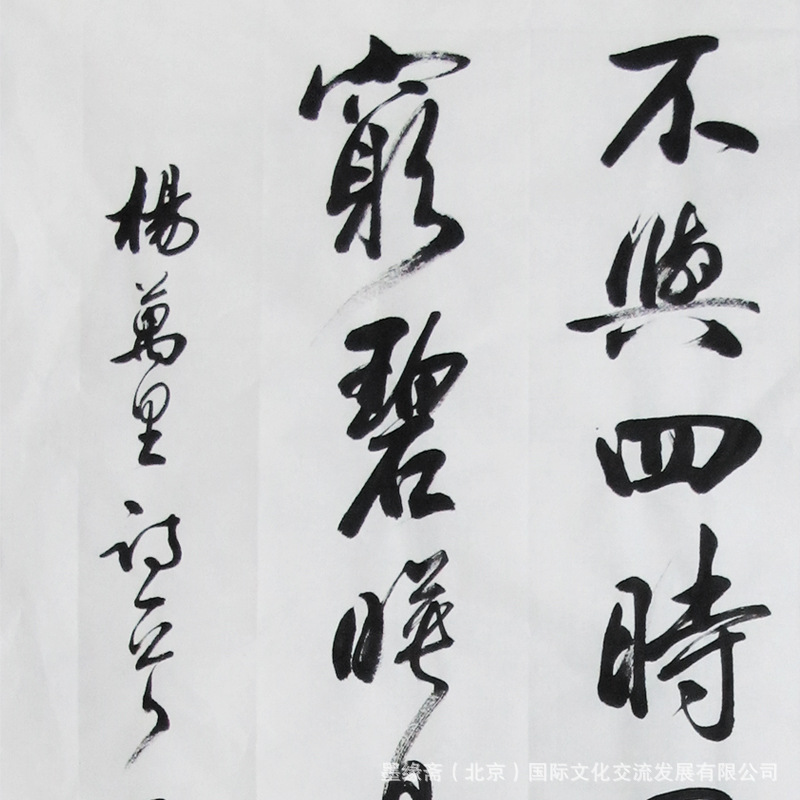 不與四時
窮碧暎
楊萬里詩
墨缘斋（北京）国际文化交流发展有限公司